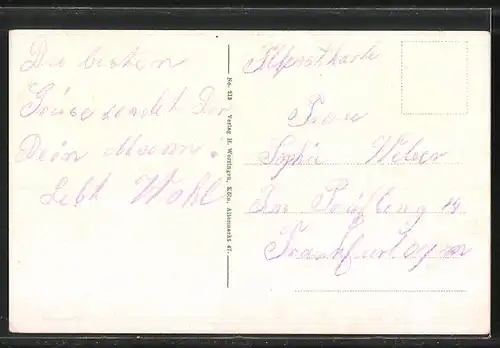 Die besten
Grüse sendet Dir
Dein Mann!
Lebt Wohl
No. 213 Verlag H. Worringen, Köln, Altenmarkt 47.
Frau
Sophie Welser
Im Prüfling 19
Frankfurt a/m